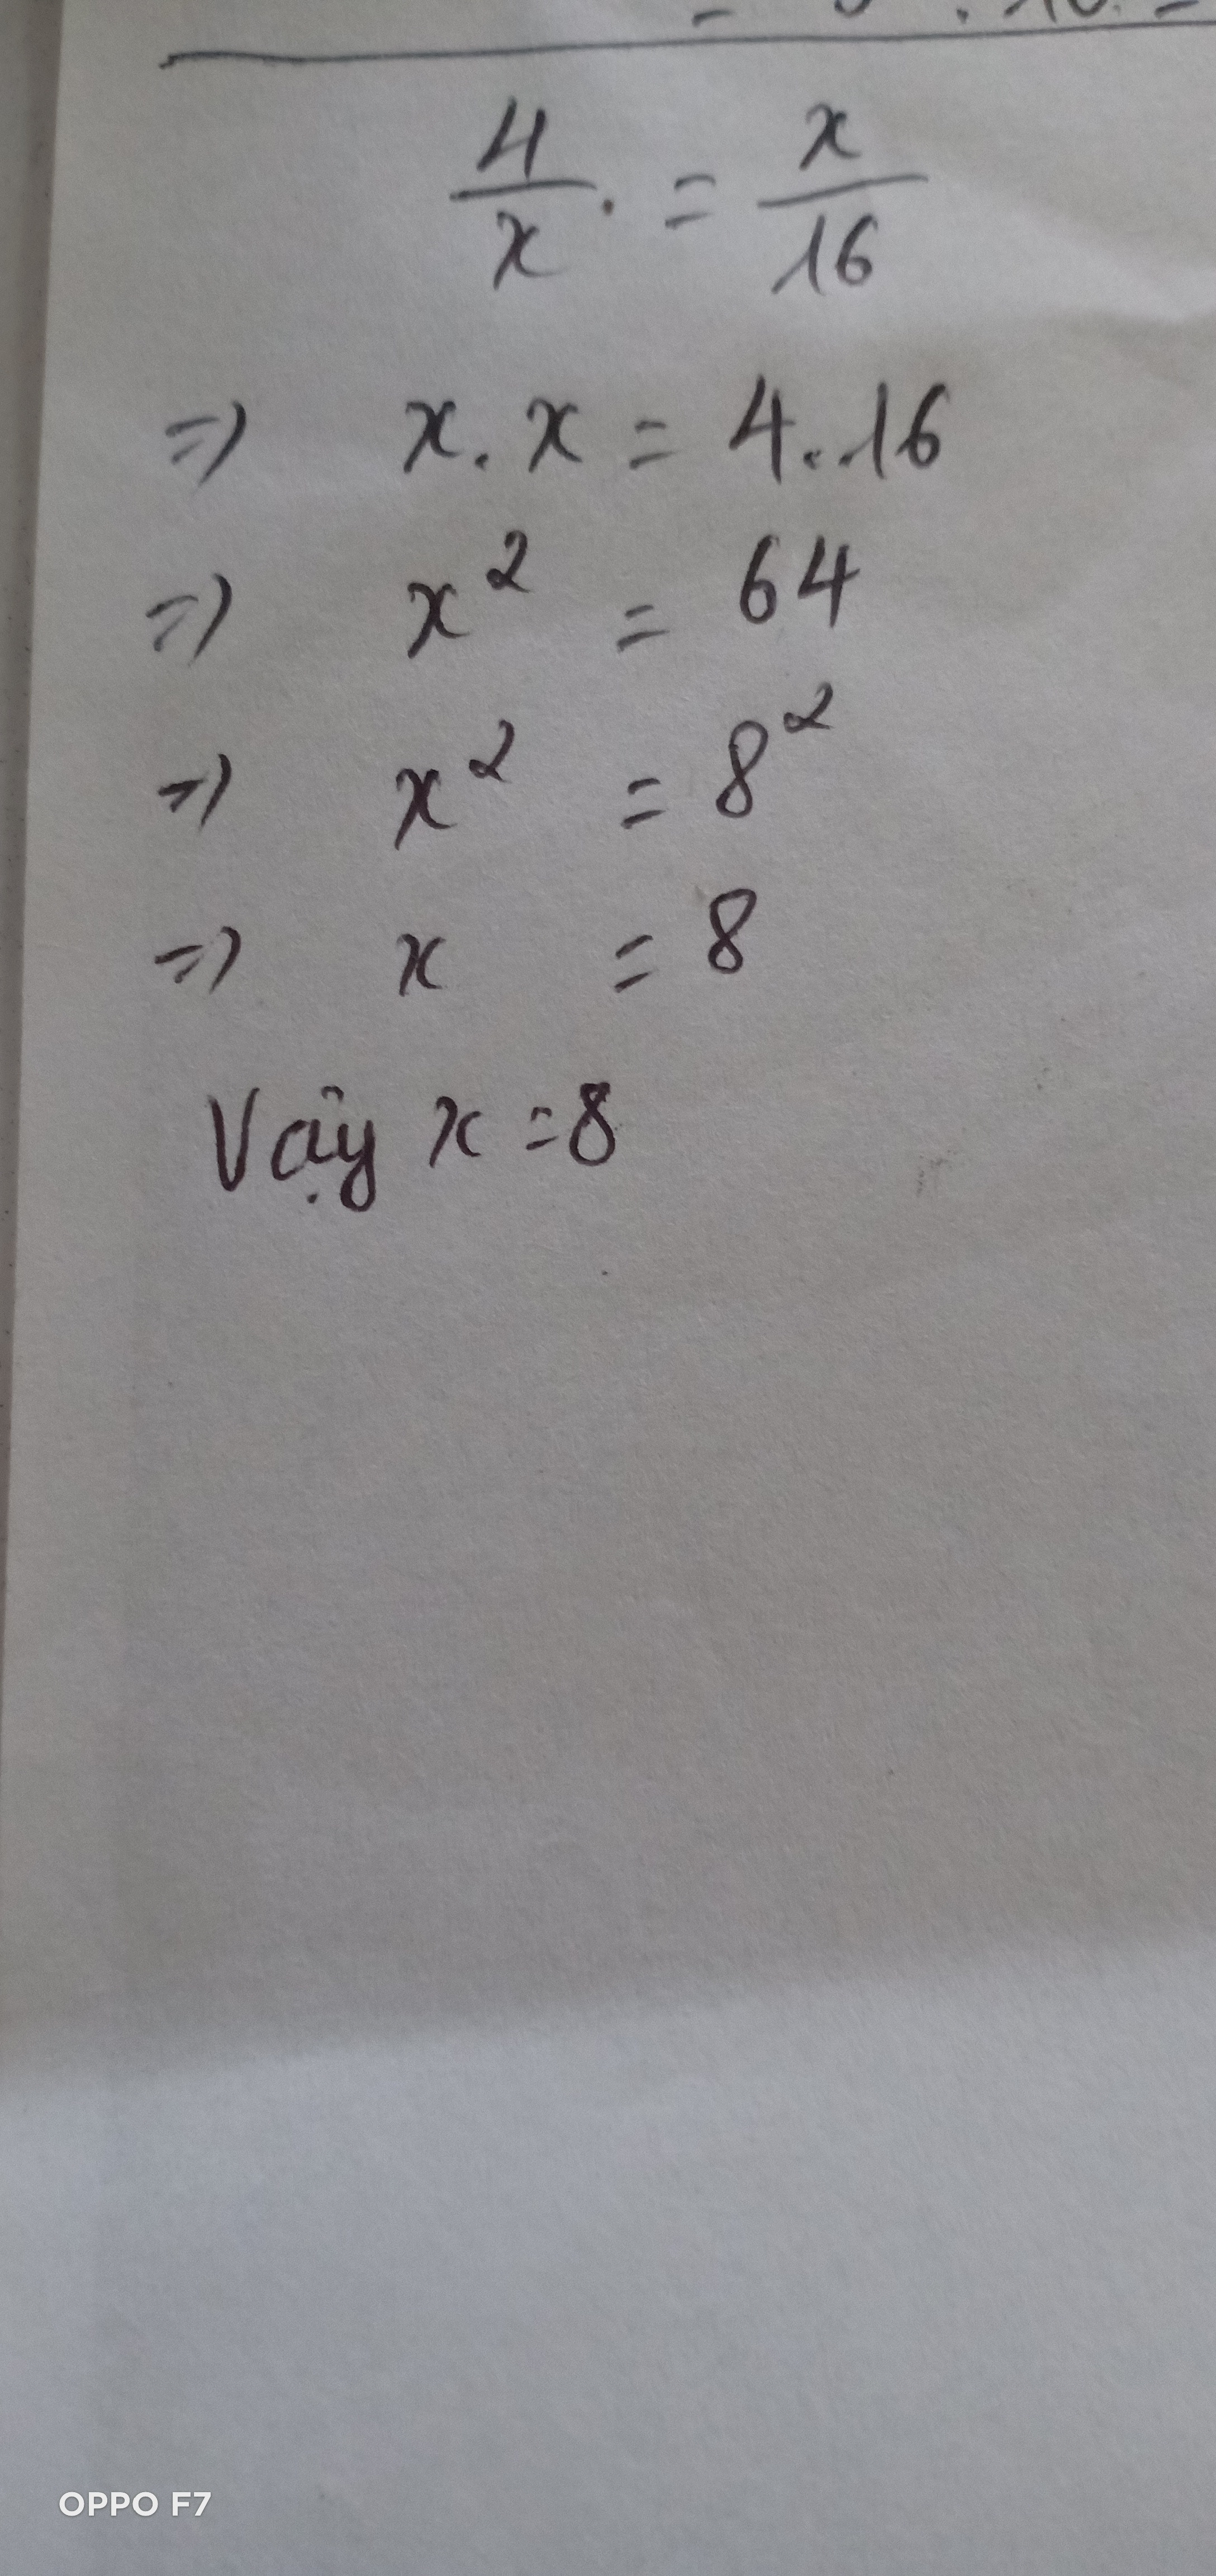 4/x . = x/16
=) x . x = 4 . . 16
=) x² = 64
=) x² = 8²
=) x = 8
Vậy x = 8
OPPO F7